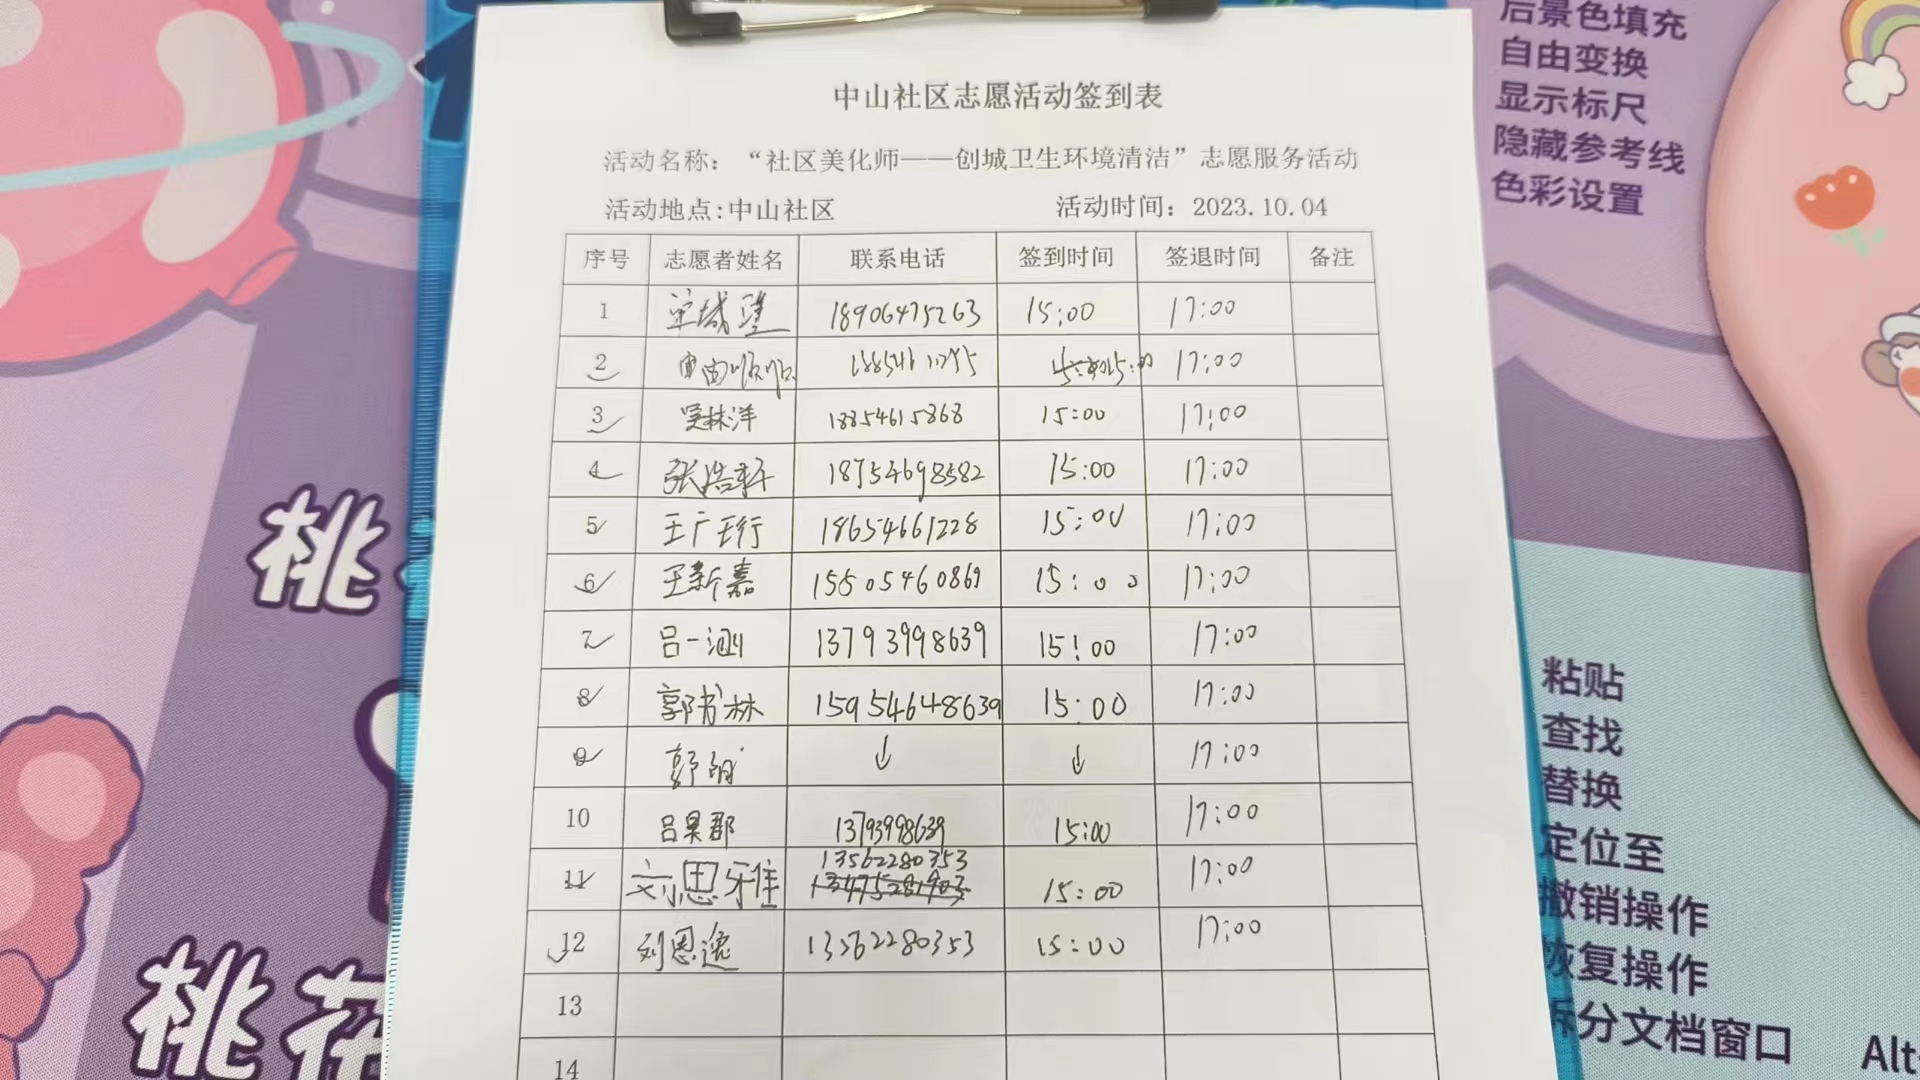 中山社区志愿活动签到表
活动名称：“社区美化师——创城卫生环境清洁”志愿服务活动
活动地点:中山社区 活动时间：2023.10.04
序号 志愿者姓名 联系电话 签到时间 签退时间 备注
1 18906475263 15:00 17:00
2 15:00 17:00
3 吴林洋 18854615868 15:00 17:00
4 张浩轩 18754698582 15:00 17:00
5 王广行 18654661228 15:00 17:00
6 王新嘉 15505460869 15:00 17:00
7 吕一涵 13793998639 15:00 17:00
8 郭林 15954648639 15:00 17:00
9 郭 ↓ ↓ 17:00
10 吕昊郡 13793998639 15:00 17:00
11 刘思雅 13562280353 15:00 17:00
13475281903
12 刘恩逸 13562280353 15:00 17:00
13
14
后景色填充
自由变换
显示标尺
隐藏参考线
色彩设置
粘贴
查找
替换
定位至
撤销操作
恢复操作
拆分文档窗口 Alt
桃
桃花